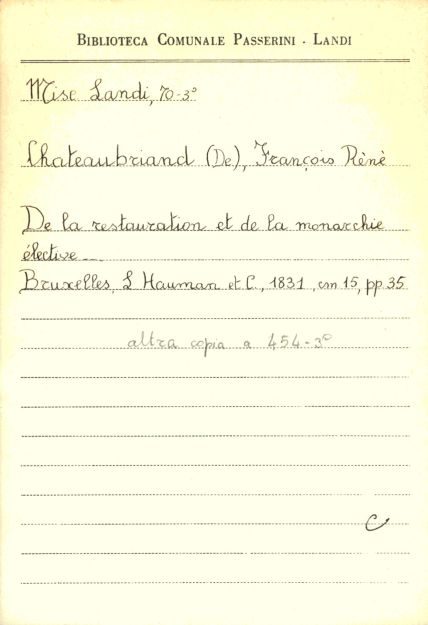 BIBLIOTECA COMUNALE PASSERINI - LANDI
Misc Landi, 70-3°
Chateaubriand (De), François Rènè
De la restauration et de la monarchie
élective ...
Bruxelles, L Hauman et C., 1831, cm 15, pp 35
altra copia a 454-3°
C